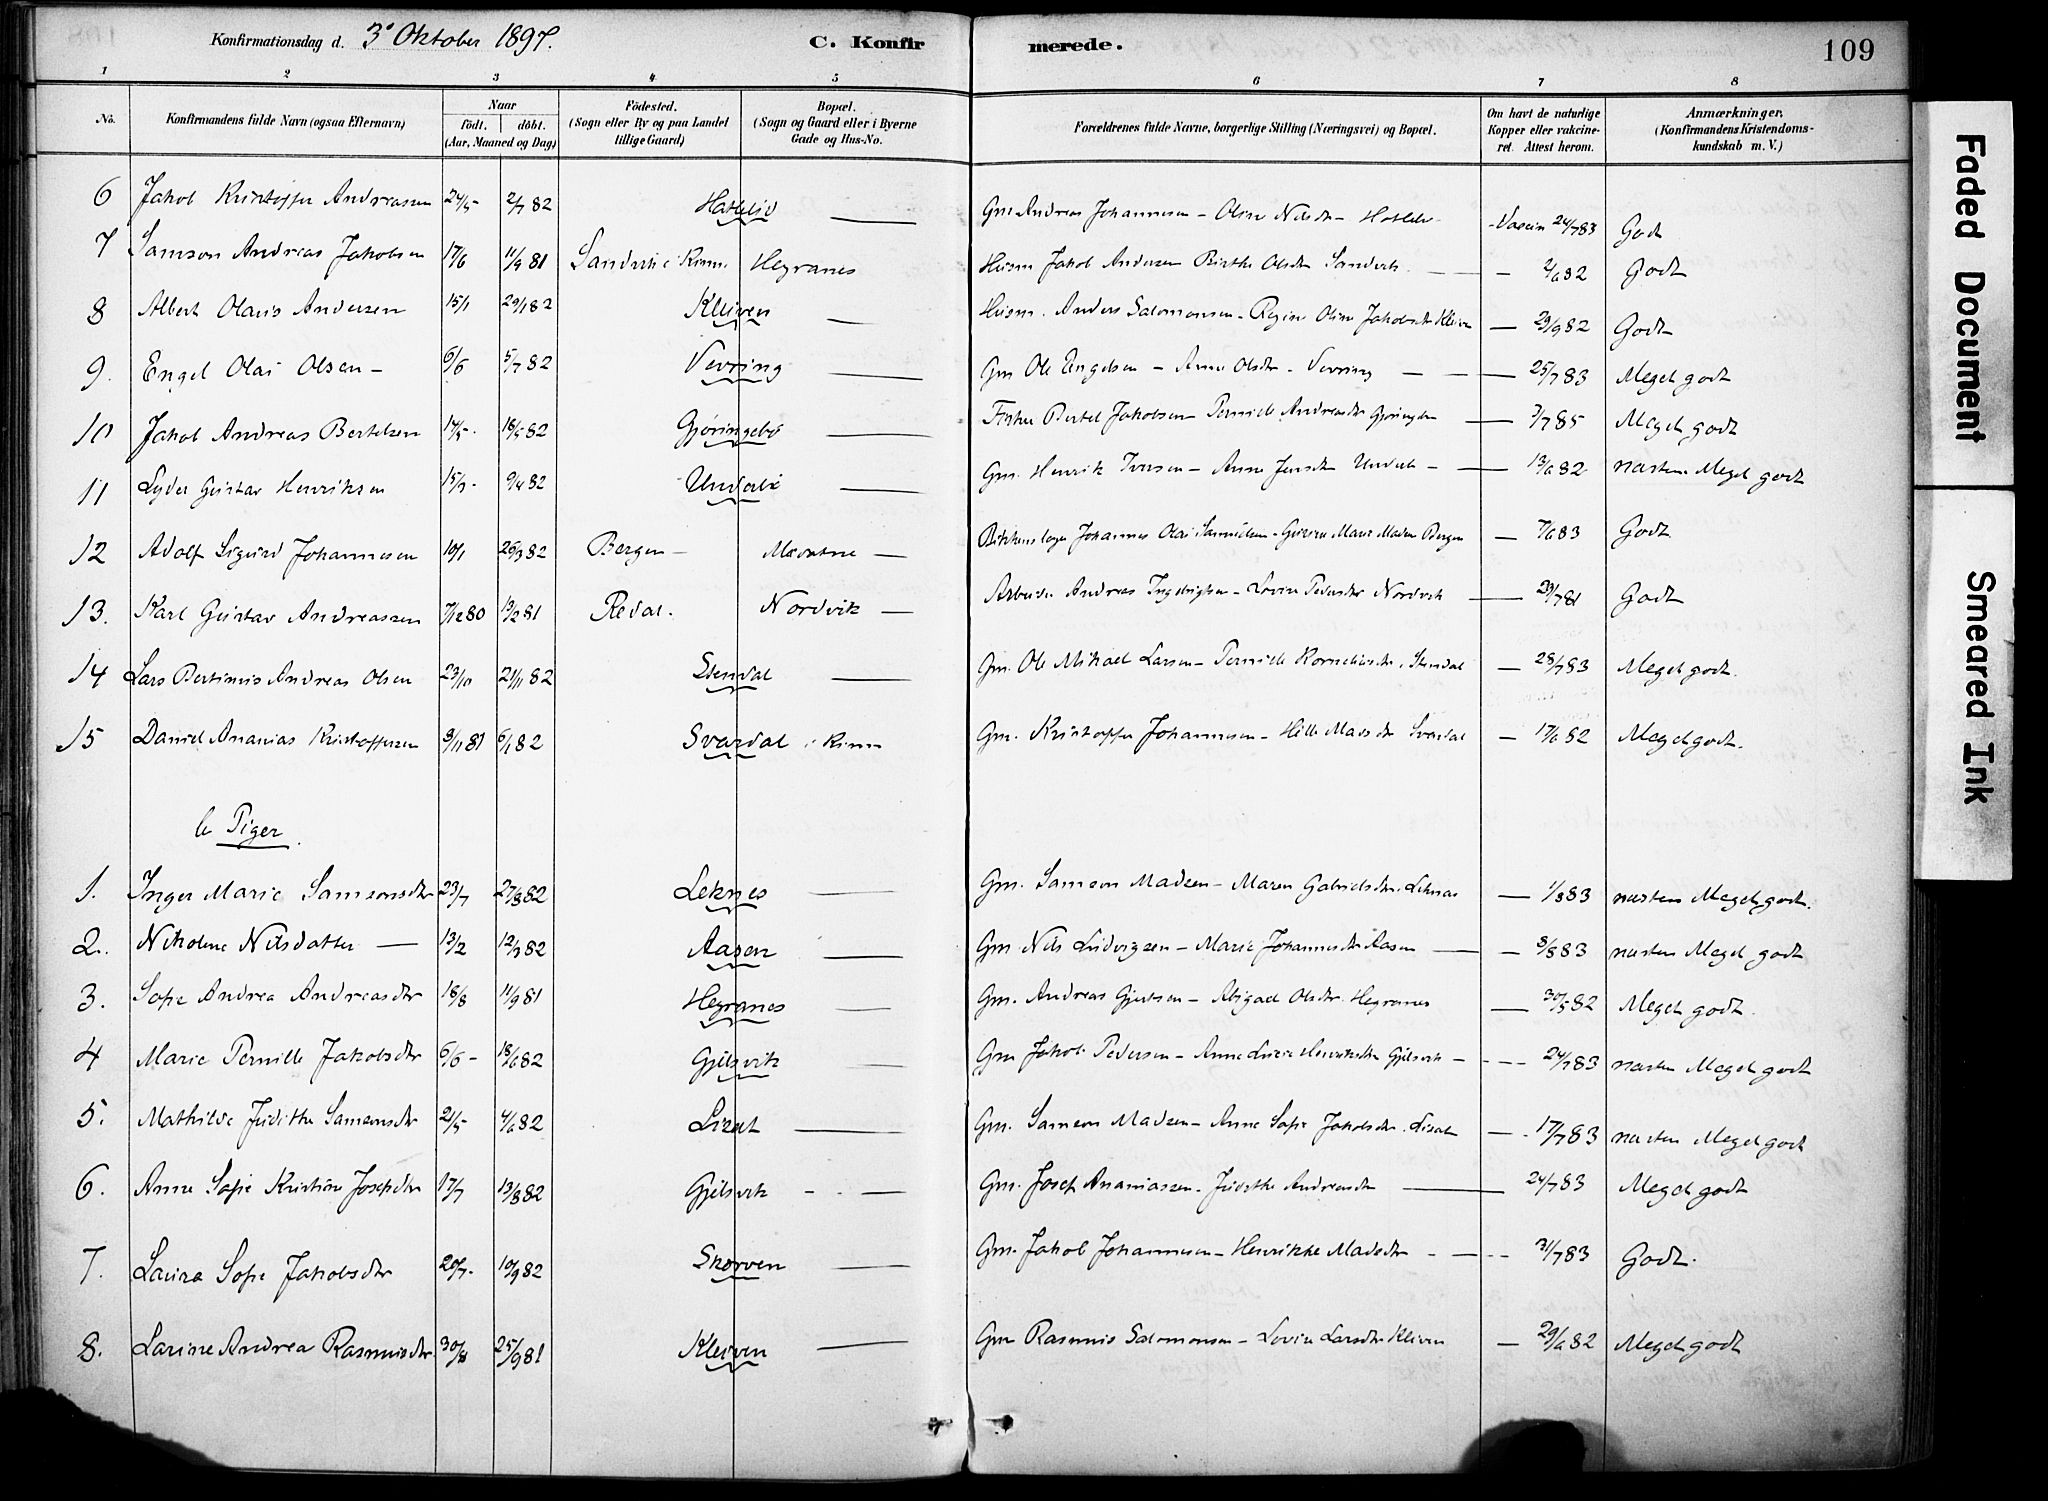 Konfirmationsdag d. 3' Oktober 1897. C. Konfirmerede. 109
1 2 3 4 5 6 7 8
No. Konfirmandens fulde Navn (ogsaa Efternavn) Naar født. døbt. (Aar, Maaned og Dag) Födested. (Sogn eller By og paa Landet tillige Gaard) Bopæl. (Sogn og Gaard eller i Byerne Gade og Hus-No. Forældrenes fulde Navne, borgerlige Stilling (Næringsvei) og Bopæl. Om havt de naturlige Kopper eller vakcineret. Attest herom. Anmærkninger, (Konfirmandens Kristendomskundskab m. V.)
6 Jakob Kristoffer Andreassen 24/5 2/7 82 — Gm Andreas Johannesen - Oline Nilsdtr - 24/7 83 Godt
7 Samson Andreas Jakobsen 17/6 11/9 81 Sandvik i Kinn. Hegranes Husm Jakob Andersen Birthe Olsdtr Sandvik — 2/6 82 Godt
8 Albert Olaus Andersen 15/1 29/1 82 Kleiven — Husm. Anders Salomonsen - Regine Oline Jakobsdtr Kleiven — 29/9 82 Godt
9. Engel Olai Olsen - 6/6 5/7 82 Vevring — Gm Ole Engelsen - Anne Olsdtr - Vevring — 25/7 83 Meget godt
10 Jakob Andreas Bertelsen 14/5. 18/5 82 Gjøringebø — Fisker Bertel Jakobsen - Pernille Andreasdtr — 7/7 85 Meget godt
11 Lyder Gustav Henriksen 15/3 - 9/4 82 — Gm. Henrik Iversen - Anne Jensdtr — 13/6 82 næsten Meget godt
12 Adolf Sigurd Johannesen 10/1 26/3 82 Bergen - — Johannes Olai Samuelsen - Bergen — 7/6 83 Godt
13. Karl Gustav Andreassen 7/12 80 13/2 81 Redal. Nordvik — Arbeider Andreas Ingebrigtsen - Lovise Pedersdtr Nordvik — 23/7 81 Godt
14 Lars Bertinius Andreas Olsen 23/10 21/11 82 Stendal — Gm. Ole Mikael Larsen - Pernille Korneliusdtr, Stendal — 28/7 83 Meget godt.
15 Daniel Ananias Kristoffersen 9/11 81 6/1 82 Svardal i Kinn Gm. Kristoffer Johannesen - Hille Madsdtr Svardal — 17/6 82 Meget godt.
b Piger.
1. Inger Marie Samsonsdtr 23/7 27/8 82 Leknes — Gm. Samson Madsen - Maren Gabrielsdtr. Leknæs — 1/8 83 næsten Meget godt.
2. Nikoline Nilsdatter — 13/2 12/3 82 Aasen — Gm. Nils Ludvigsen - Marie Johannesdtr Aasen — 3/8 83 næsten Meget godt
3. Sofie Andrea Andreasdtr 18/8 11/9 81 Hegranes — Gm. Andreas Gjertsen - Abigael Olsdtr. Hegranes — 30/5 82 Meget godt.
4 Marie Pernille Jakobsdtr 6/6 - 18/6 82 Gjelsvik — Gm Jakob Pedersen - Anne Lovise Henriksdtr Gjelsvik — 24/7 83 næsten Meget godt
5. Mathilde Judithe Samsonsdtr 21/5 4/6 82 Liset — Gm. Samson Madsen - Anne Sofie Jakobsdtr. Liset — 17/7 83 næsten Meget godt
6. Anne Sofie Kristine Josepdtr 17/7 13/8 82 Gjelsvik — Gm. Josef Ananiassen - Judithe Andreasdtr — 24/7 83 Meget godt
7. Laura Sofie Jakobsdtr 20/7. 10/9 82 Skorven — Gm. Jakob Johannesen - Henrikke Madsdtr — 31/7 83 Godt.
8. Larine Andrea Rasmusdtr 30/8 25/9 81 Kleiven — Gm Rasmus Salomonsen - Lovise Larsdtr Kleiven — 29/6 82 Meget godt
Faded Document
Smeared Ink